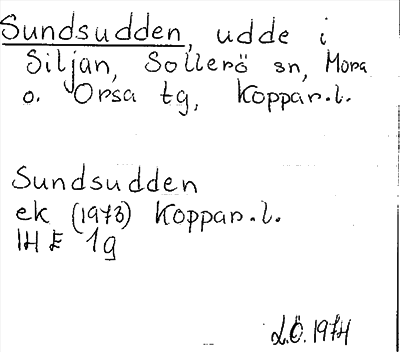 Sundsudden, udde i
Siljan, Sollerö sn, Mora
o. Orsa tg, Koppar.l.
Sundsudden
ek (1973) Koppar.l.
14 E 1g
L.Ö. 1974